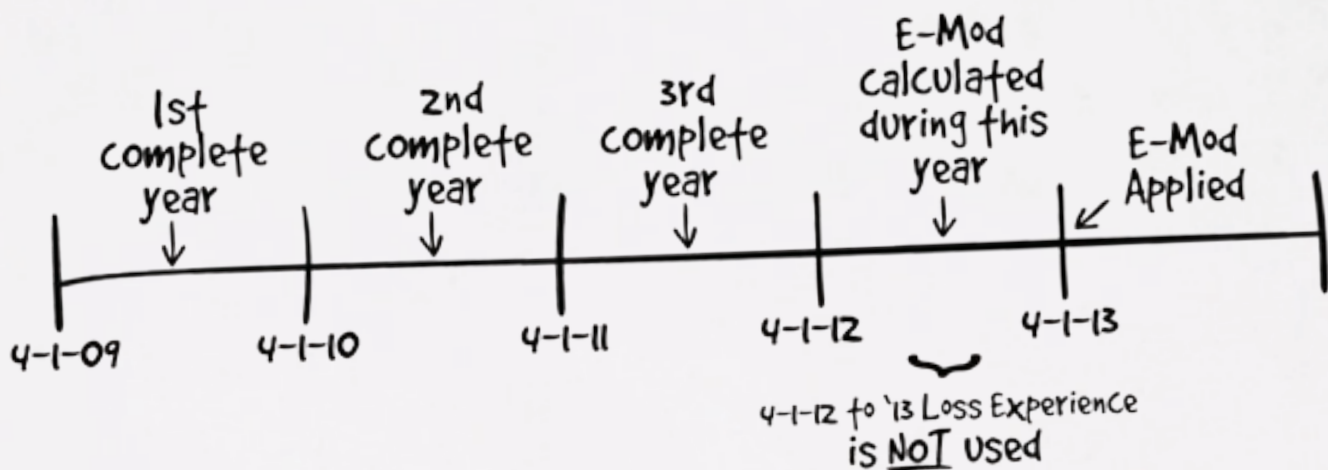 1st
complete
year
2nd
complete
year
3rd
complete
year
E-Mod
calculated
during this
year
E-Mod
Applied
4-1-09
4-1-10
4-1-11
4-1-12
4-1-13
4-1-12 to '13 Loss Experience
is NOT used